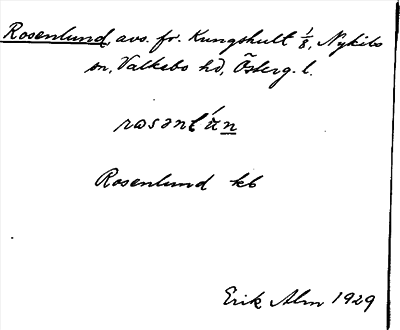 Rosenlund, avs. fr. Kungshult 1/8, Nykils
sn, Valkebo hd, Österg. l.
Rosenlund kb
Erik Alm 1929